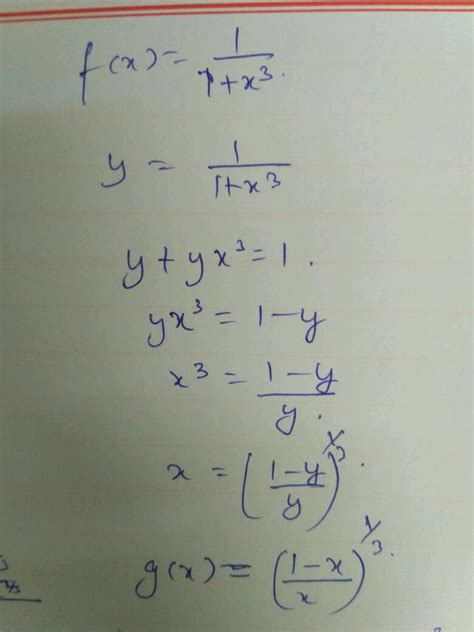 f(x) = 1/1+x³.
y = 1/1+x³
y + yx³ = 1.
yx³ = 1-y
x³ = 1-y/y.
x = (1-y/y)^1/3.
g(x) = (1-x/x)^1/3.